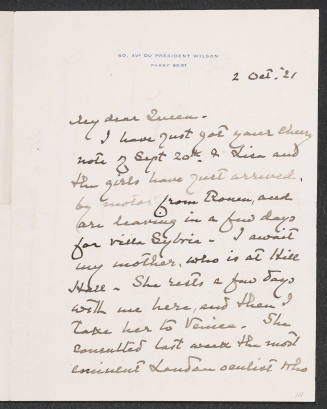 NO. AVE DU PRÉSIDENT WILSON
PASSY
2 Oct. 21
My dear Queen.
I have just got your cheery
note of Sept 20th & Lisa and
the girls have just arrived,
by motor from Rouen, and
are leaving in a few days
for Villa Sylvia. I await
my mother, who is at Hill
Hall. She rests a few days
with me here, and then I
take her to Venice. She
consulted last week the most
eminent London oculist who